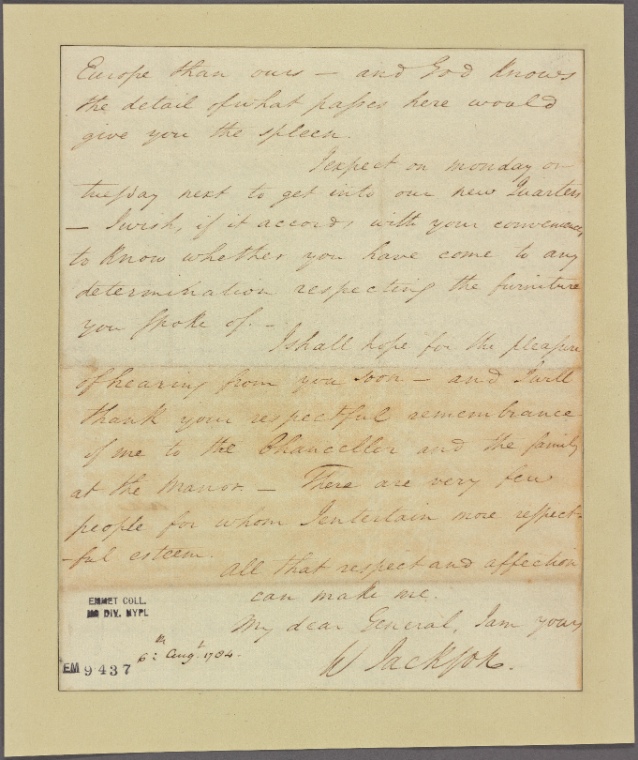 Europe than ours — and God knows
the detail of what passes here would
give you the spleen.
I expect on monday or
tuesday next to get into our new Quarters
— I wish, if it accords with your convenience,
to know whether you have come to any
determination respecting the furniture
you spoke of. —
I shall hope for the pleasure
of hearing from you soon — and I will
thank your respectful remembrance
of me to the Chancellor and the family
at the Manor — There are very few
people for whom I entertain more respect-
-ful esteem.
All that respect and affection
can make me.
My dear General, I am yours
W Jackson.
6th Augt 1784.
EMMET COLL.
DIV. NYPL
EM 9437